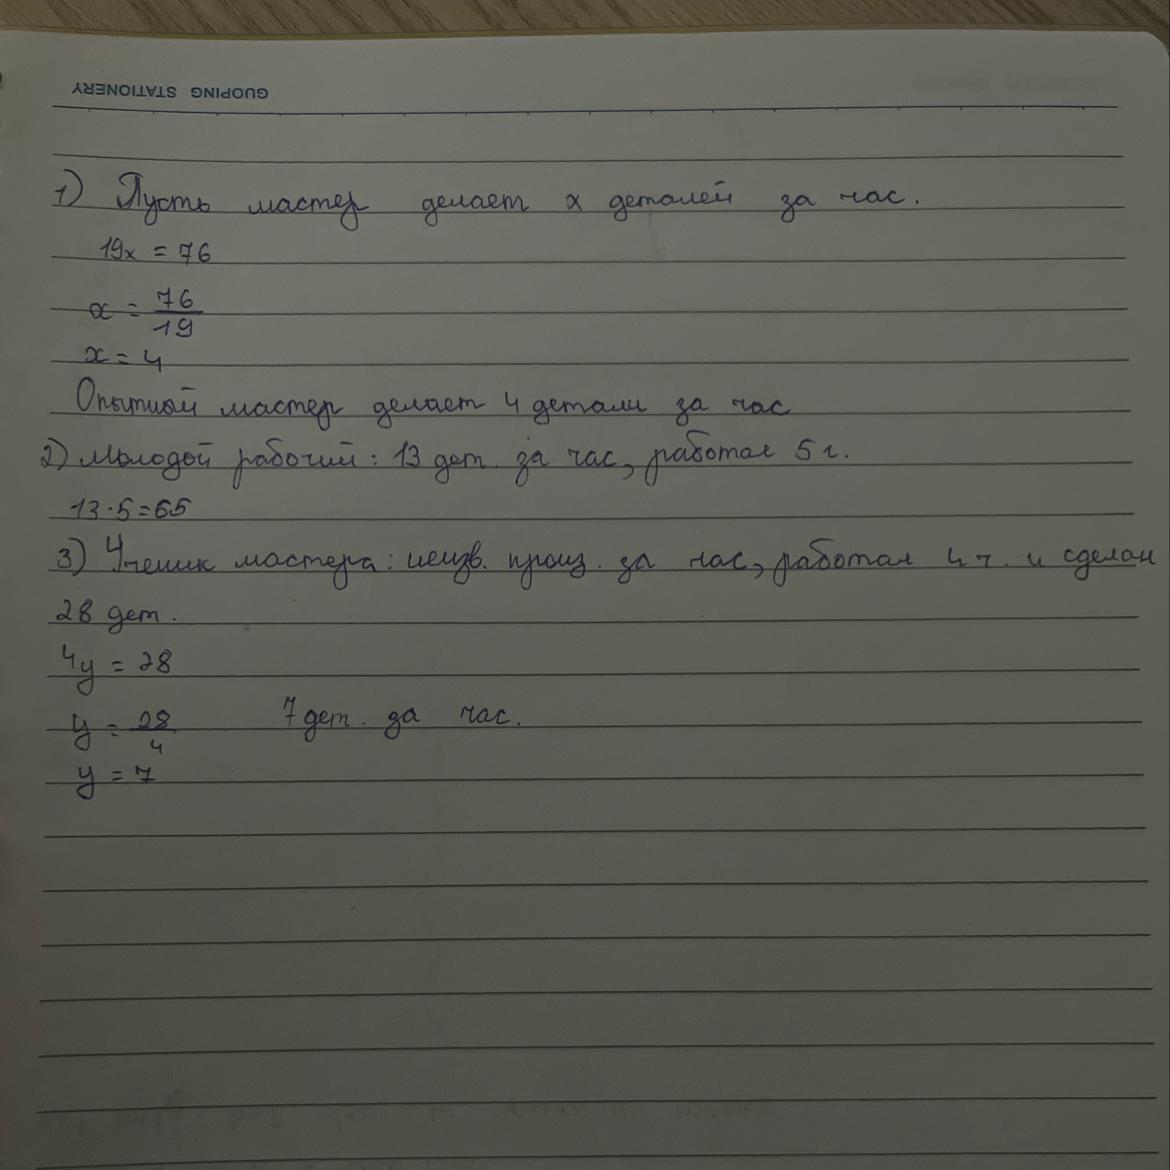 GUOPING STATIONERY
1) Пусть мастер делает x деталей за час.
19x = 76
x = 76/19
x = 4
Опытный мастер делает 4 детали за час
2) Молодой рабочий: 13 дет. за час, работал 5 г.
13·5=65
3) Ученик мастера: неизв. произ. за час, работал 4 ч. и сделал
28 дет.
4y = 28
y = 28/4 7 дет. за час.
y = 7